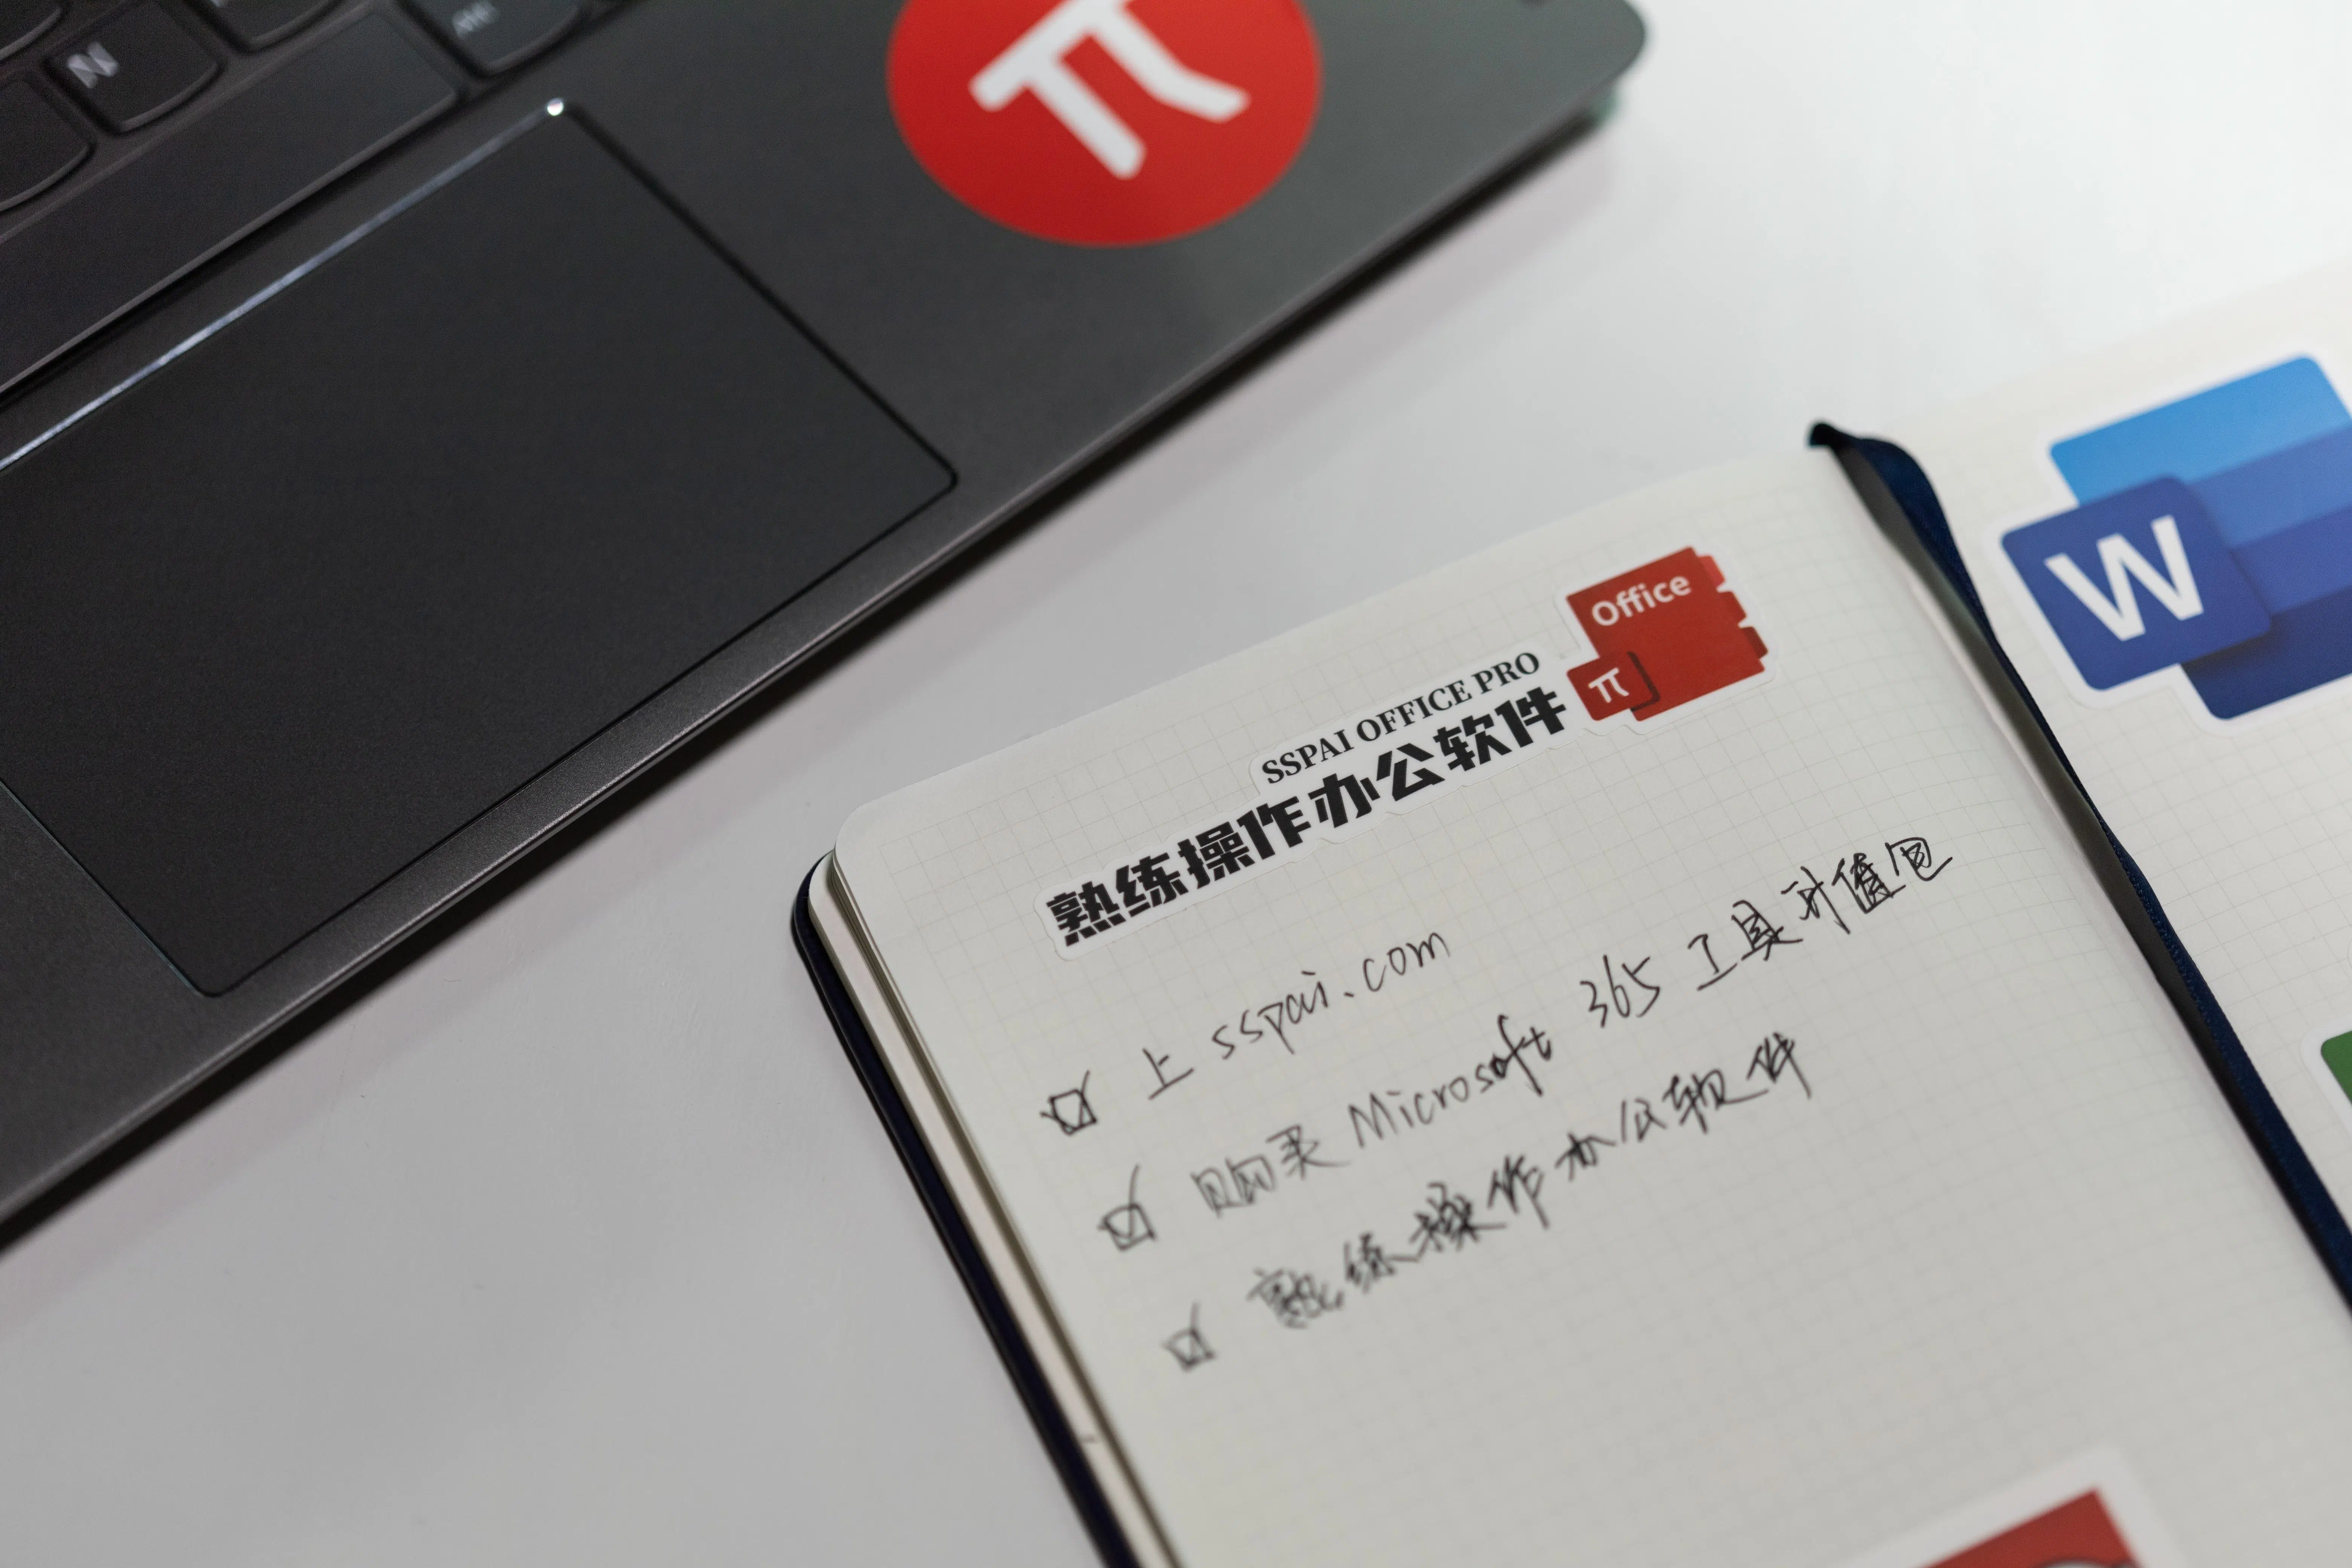 N
π
Office
π
SSPAI OFFICE PRO
熟练操作办公软件
W
上 sspai.com
购买 Microsoft 365 工具超值包
熟练操作办公软件